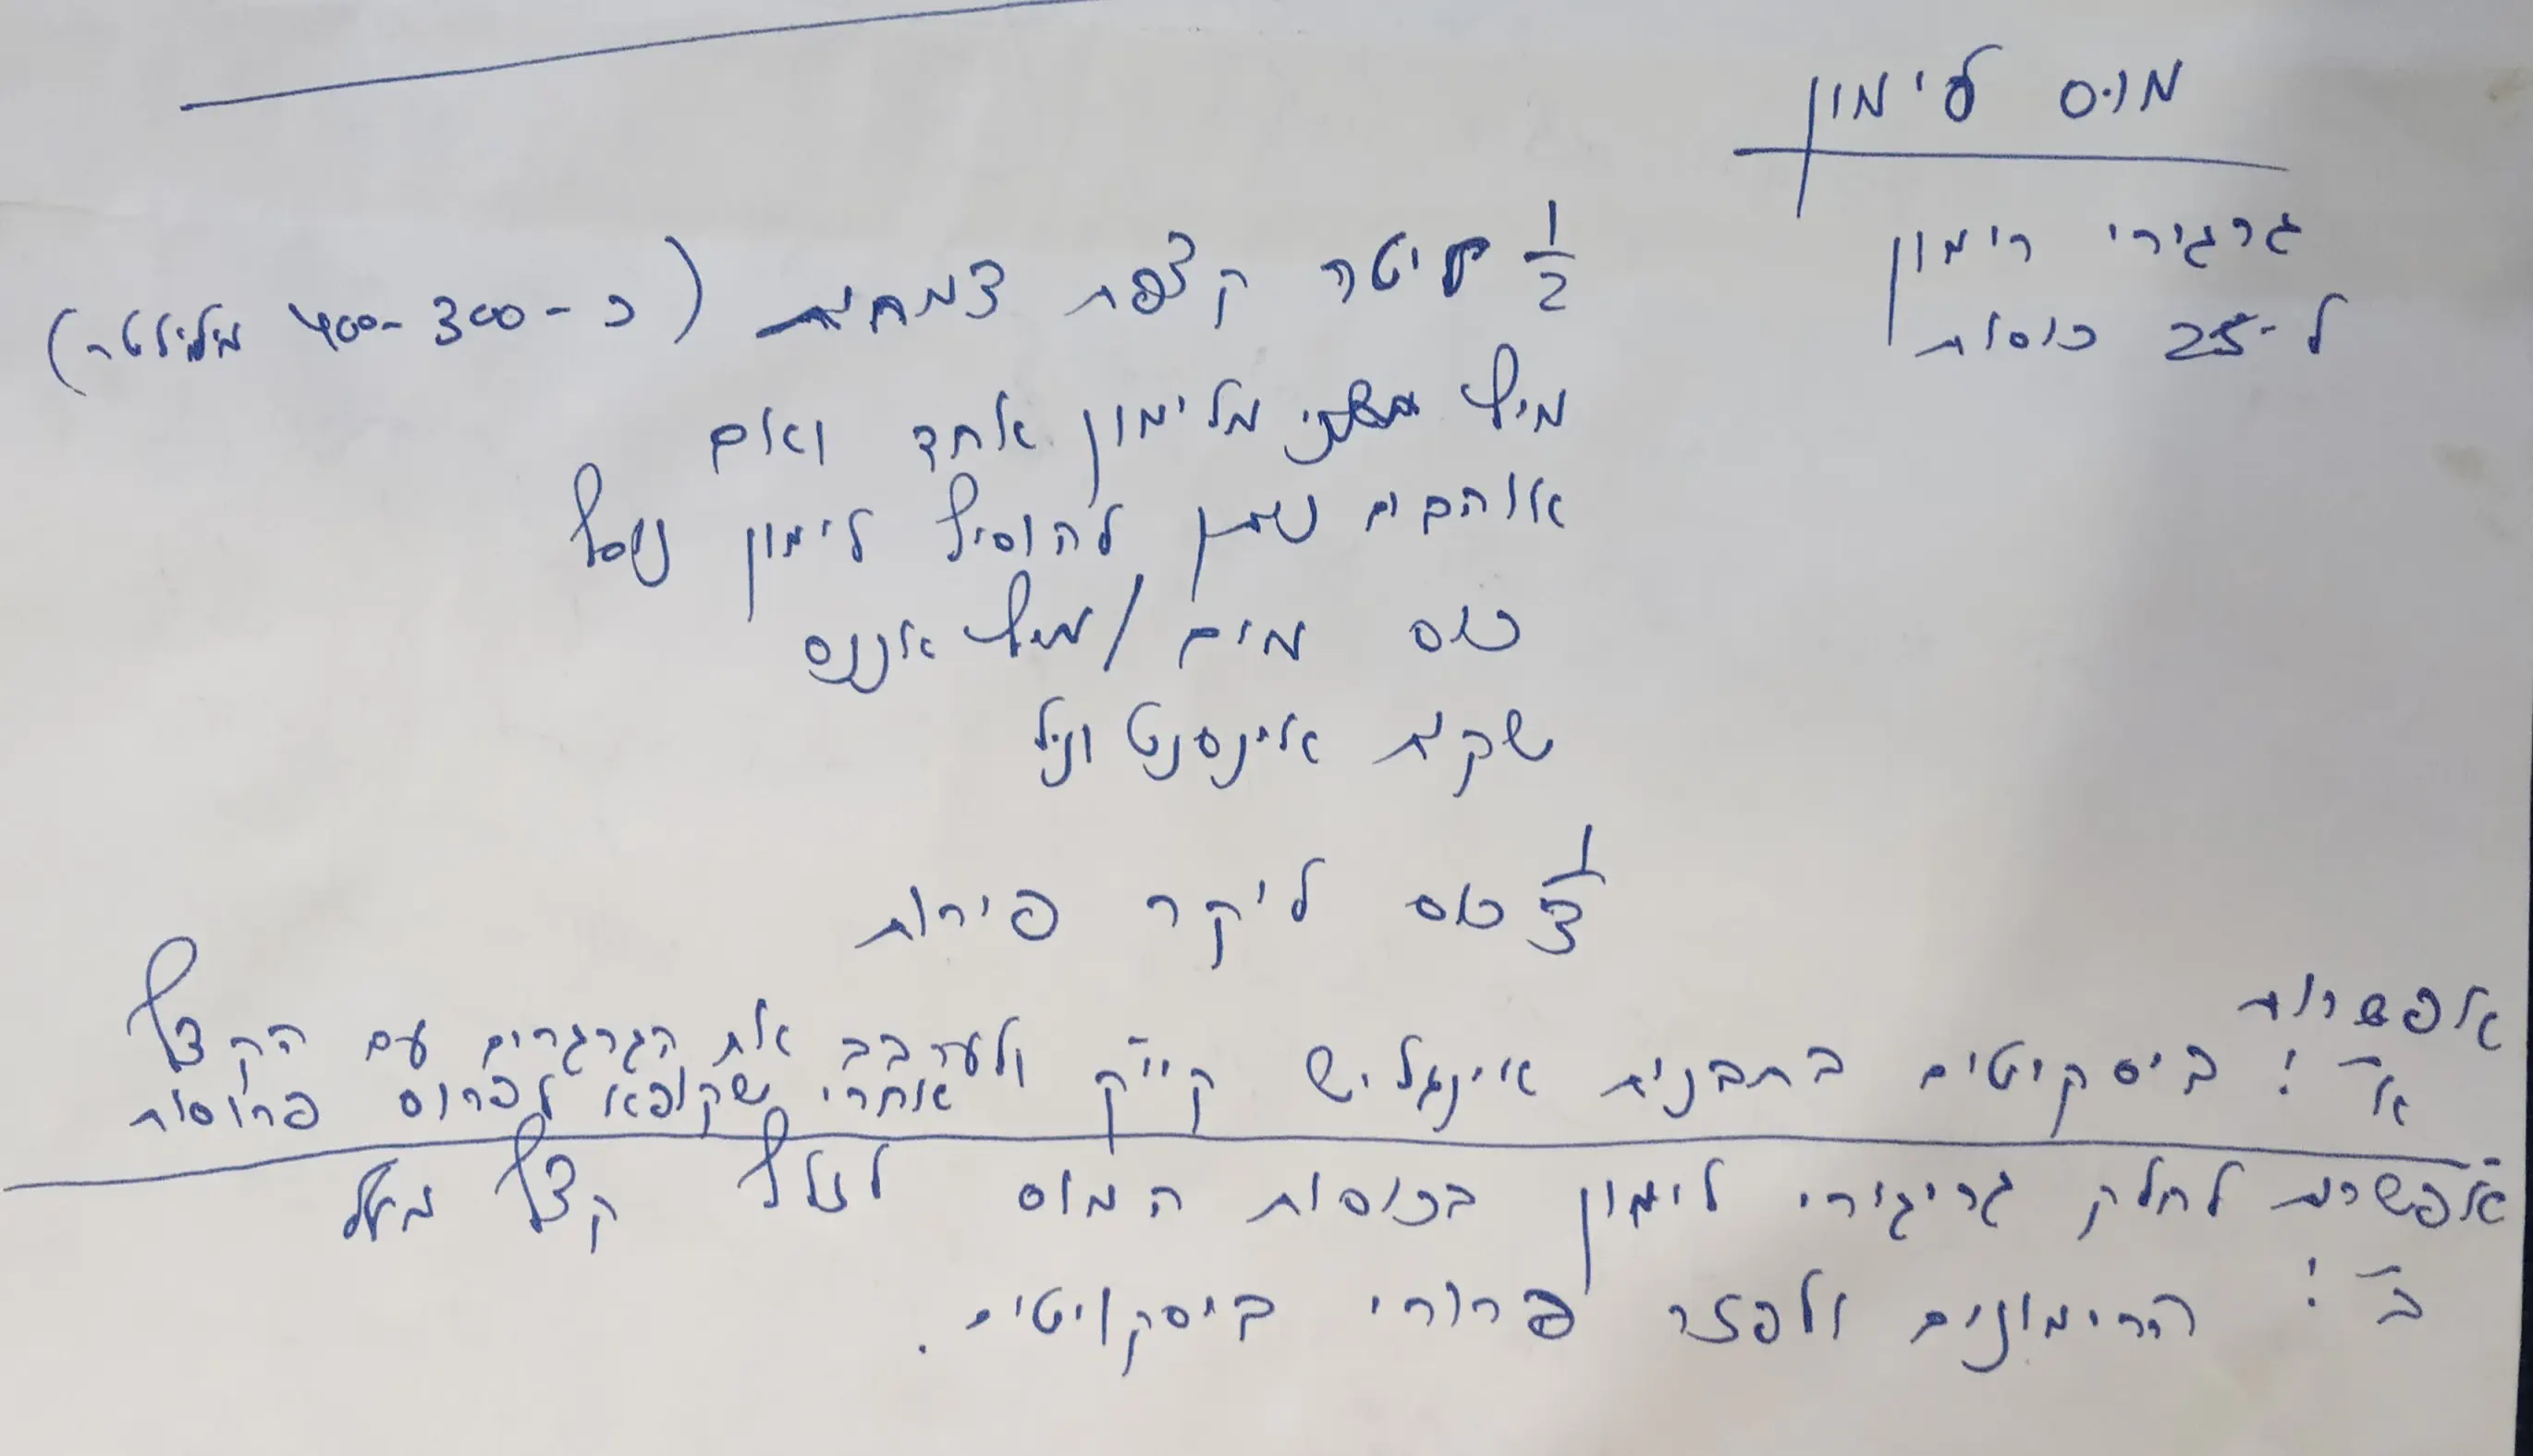 מוס לימון
גרגירי רימון
ל-25 כוסות
1/2 ליטר קצפת צמחית (כ-300-400 מיליליטר)
מיץ מלימון אחד ואם
אוהבים ניתן להוסיף לימון נוסף
כוס מים/מיץ אננס
שקית אינסטנט וניל
1/3 כוס ליקר פירות
אפשרות
א': ביסקויטים בתבנית אינגליש קייק ולערבב את הגרגרים עם הקצף
אחרי שקופא לפרוס פרוסות
אפשרות לחלק גרגירי לימון בכוסות המוס לזלף קצף מעל
ב': הרימונים ולפזר פרורי ביסקויטים.